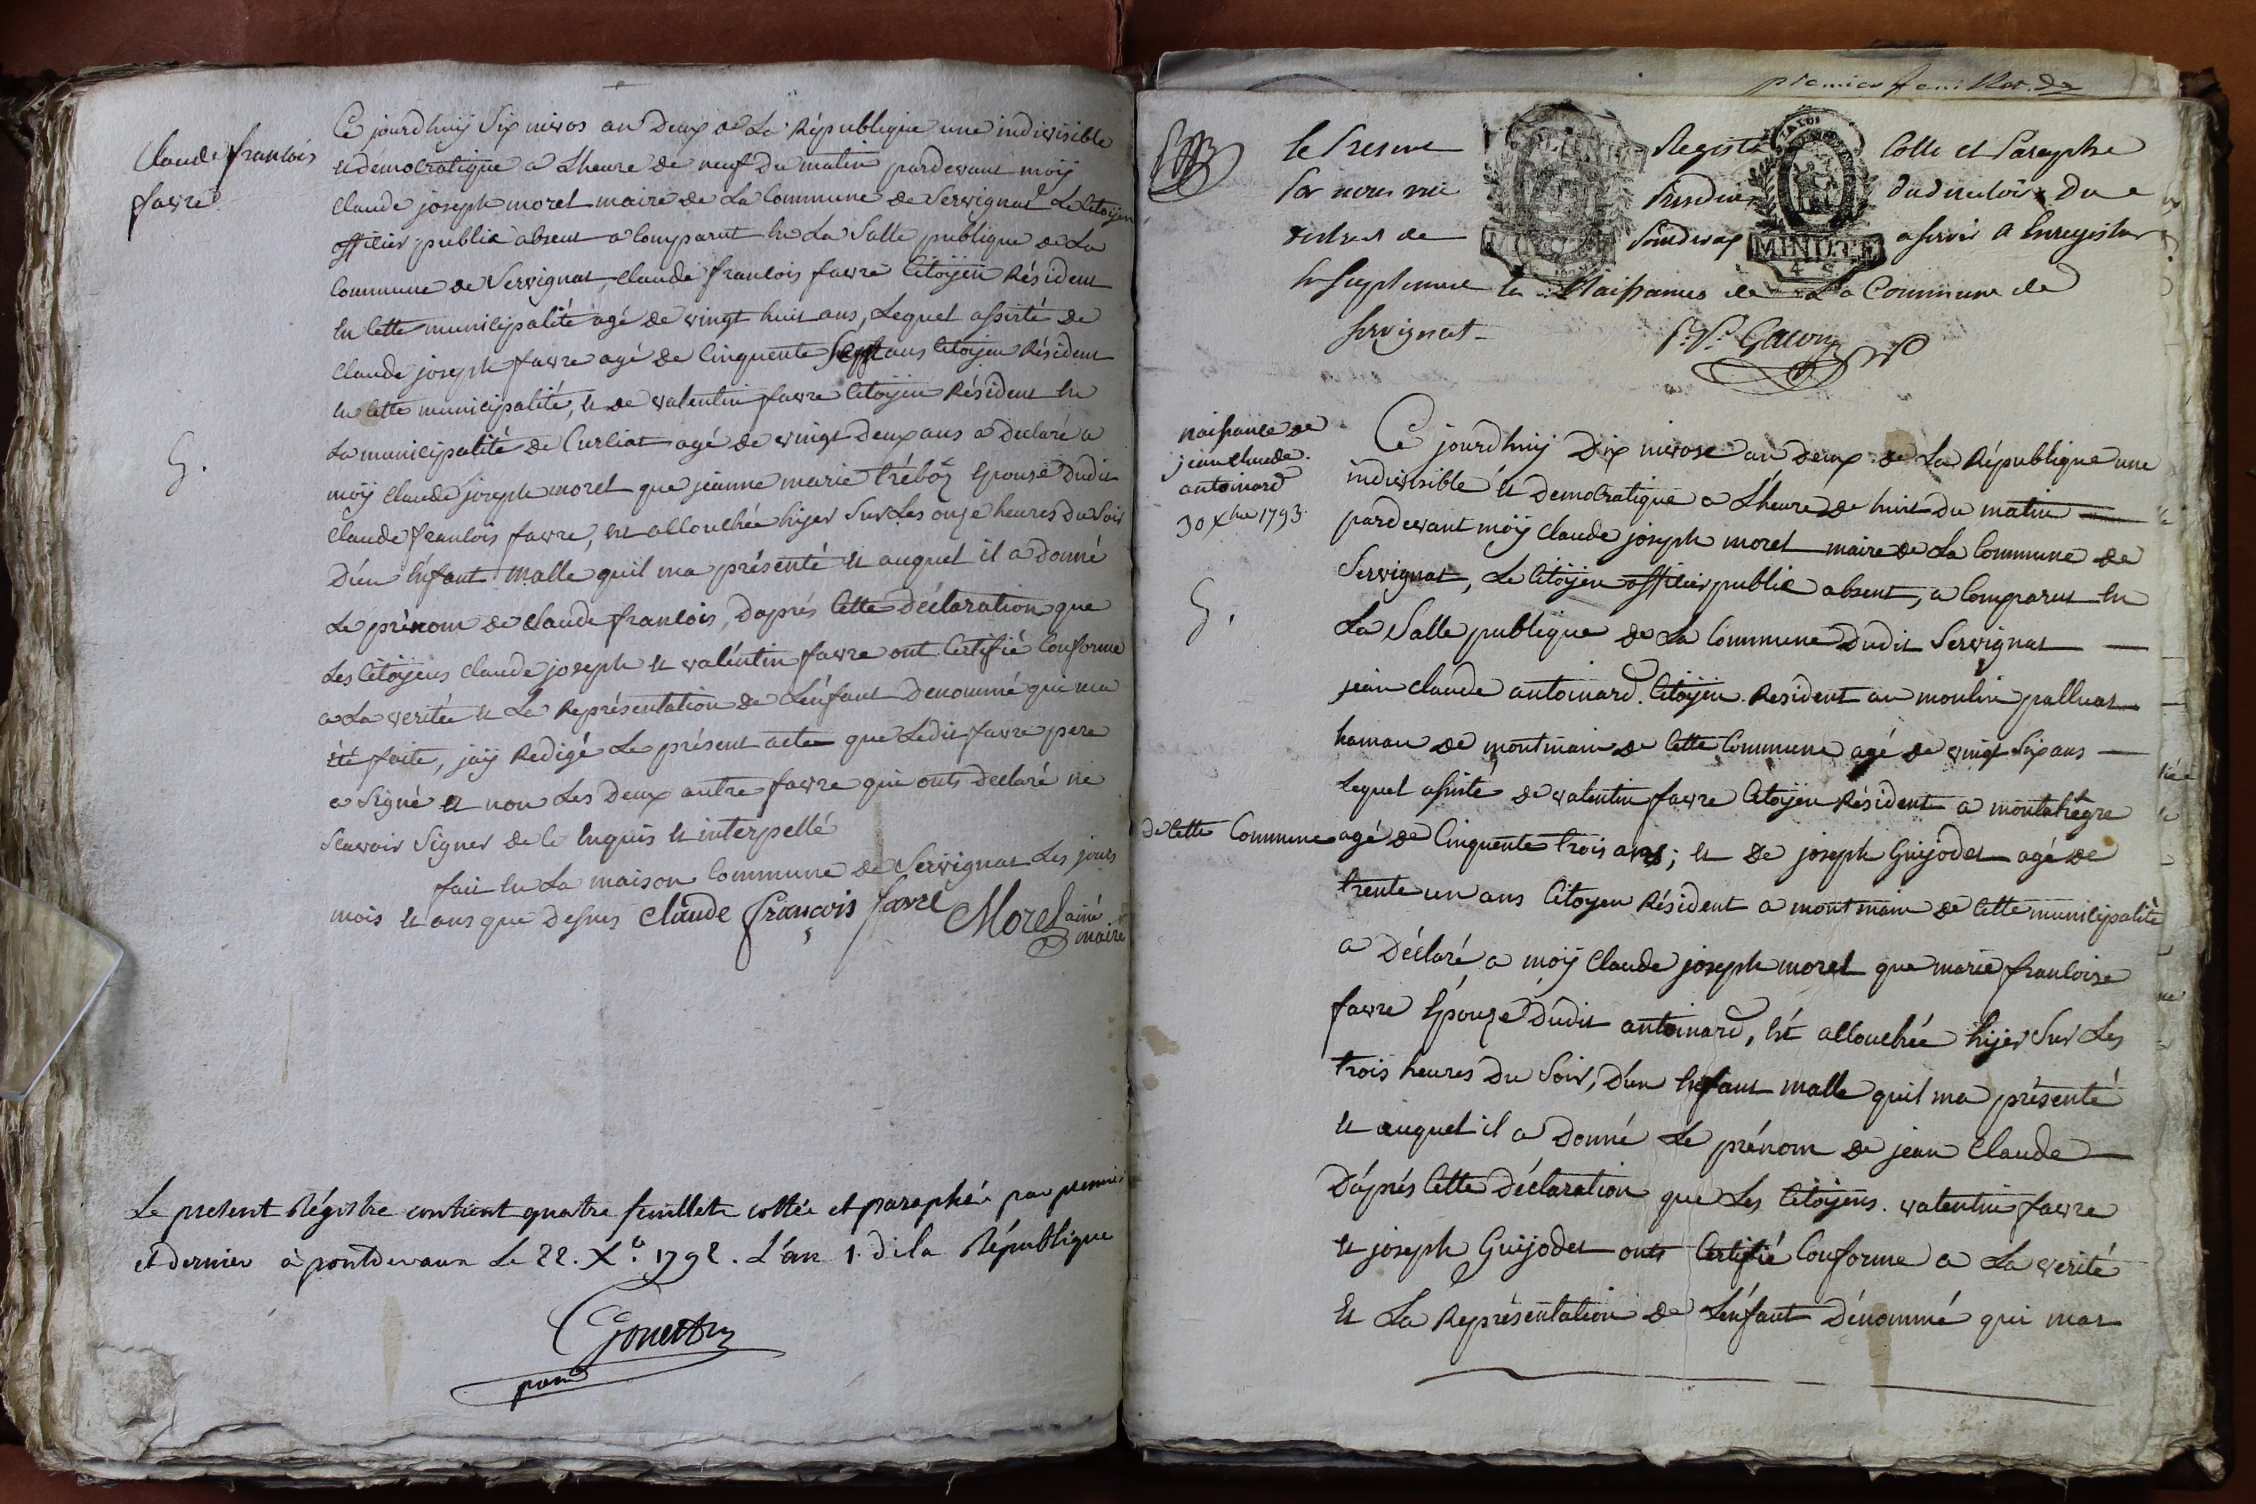 Claude francois
favre
Ce jourdhuij Six nivos an Deux de La République une indivisible
et démocratique a Lheure de neuf du matin pardevant moij
Claude joseph morel maire de La Commune de Servignat Le Citoijen
officier public absent a Comparut En La Salle publique de La
Commune de Servignat, Claude francois favre Citoijen Résident
En Cette municipalité agé de vingt huit ans, Lequel assisté de
Claude joseph favre agé de Cinquente Sept ans Citoijen Résident
En Cette municipalité, et de valentin favre Citoijen Résident En
La municipalité de Curciat agé de vingt deux ans a Declaré a
moij Claude joseph morel que jeanne marie Epouse Dudit
Claude francois favre, est accouchée hijer Sur Les onze heures du Soir
D'un Enfant malle quil ma présenté et auquel il a donné
Le prénom de Claude francois, Daprés Cette Déclaration que
Les Citoijens Claude joseph et valéntin favre ont Certifié Conforme
a La verité et Le Représentation de L'enfant Denommé qui ma
été faite, jaij Redigé Le présent acte que Ledit favre pere
a Signé et non Les Deux autre favre qui onts Declaré ne
Scavoir Signer de ce Enquis et interpellé
fait En La maison Commune de Servignat Les jours
mois et ans que Dessus Claude françois favre Morel ainé
maire
Le présent Régistre contient quatre feuillets cottée et paraphée par premier
et dernier à pontdevaux Le 22. Xe. 1792. L'an 1. de la République
premier feuillet.
le Present Registre Cotte et Paraphe
Par nous
de a servir a Enregistrer
En Supplement les Naissances de La Commune de
servignat
naissance de
jean claude
antoinard
30 Xbre 1793.
Ce jourdhuij Dix nivose an Deux de La République une
indivisible et Democratique a L'heure de huit du matin
pardevant moij Claude joseph morel maire de La Commune de
Servignat, Le Citoijen officier public absent, a Comparut En
La Salle publique de La Commune Dudit Servignat
jean Claude antoinard Citoijen Resident au moulin palluat
hamau de montmain de Cette Commune agé de vingt Six ans
Lequel assisté de valentin favre Citoijen Résident a montalégre
de Cette Commune agé de Cinquente trois ans; et De joseph Guijodet agé de
trente un ans Citoyen Résident a montmain de Cette municipalité
a Déclaré a moij Claude joseph morel que marie francoise
favre Epouze Dudit antoinard, Est accouchée hijer Sur Les
trois heures du Soir, D'un Enfant malle quil ma présenté
et auquel il a Donné Le prénom de jean Claude
D'aprés Cette Déclaration que Les Citoijens valentin favre
et joseph Guijodet onts Certifié Conforme a La verité
Et La Représentation de L'enfant Dénommé qui mat